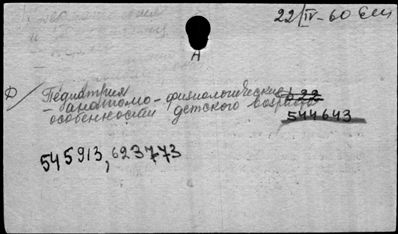 22/IV-60 Еш
А
Ф/ Педиатрия
- анатомо-физиологические
особенности детского возраста
544643
545913, 623773